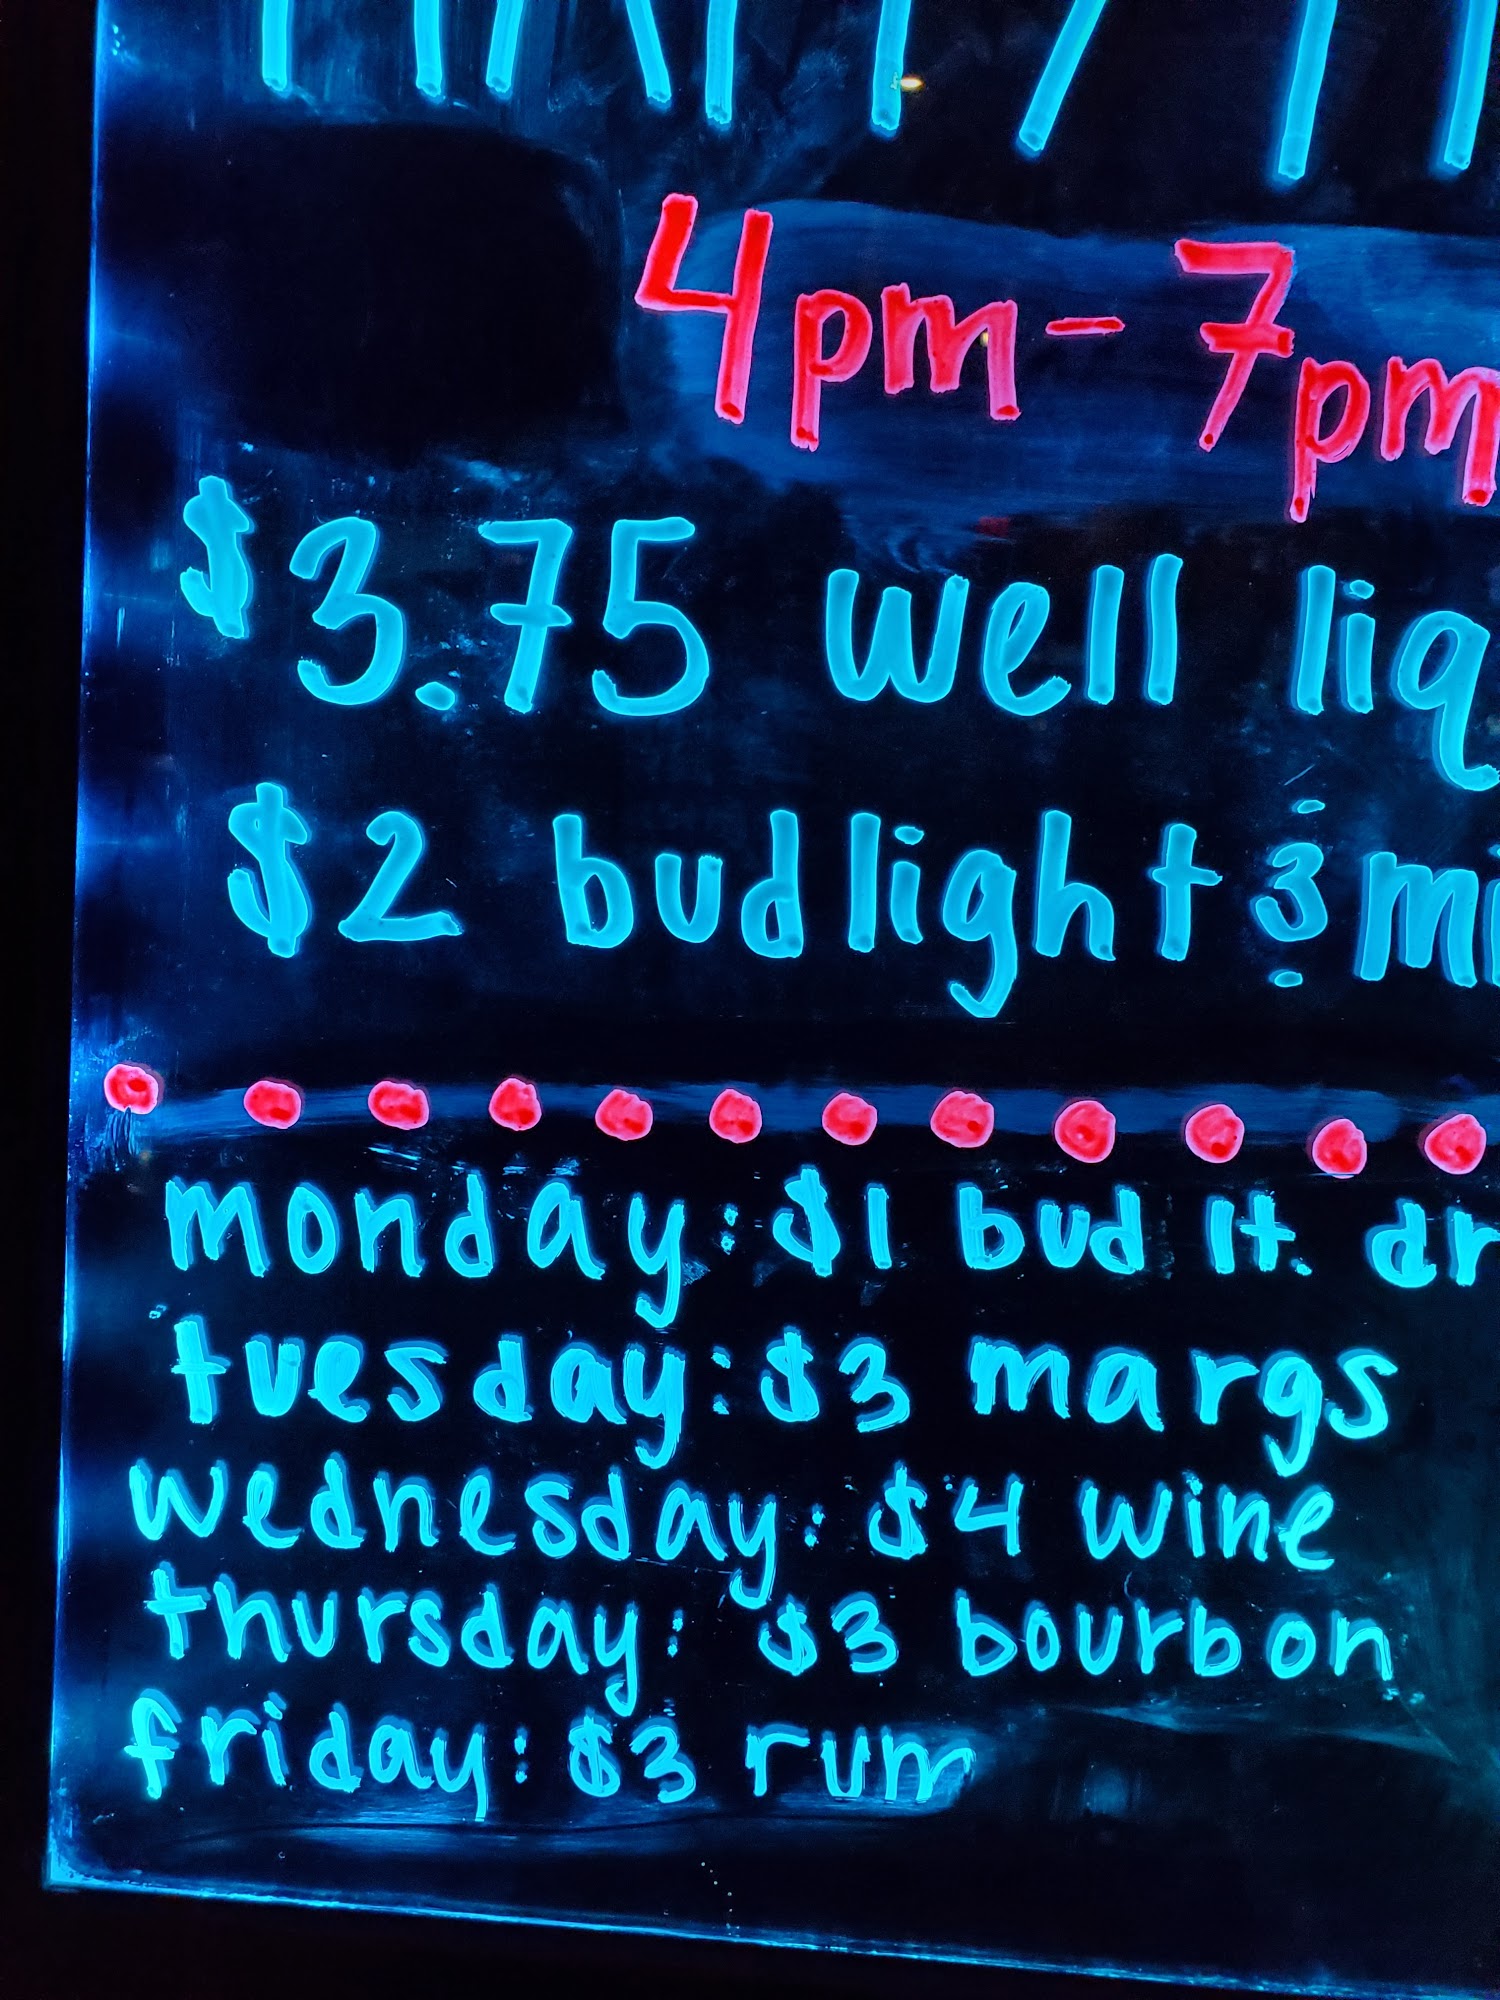 4pm-7pm
$3.75 well liq
$2 budlight & mi
monday: $1 bud lt. dr
tuesday: $3 margs
wednesday: $4 wine
thursday: $3 bourbon
friday: $3 rum